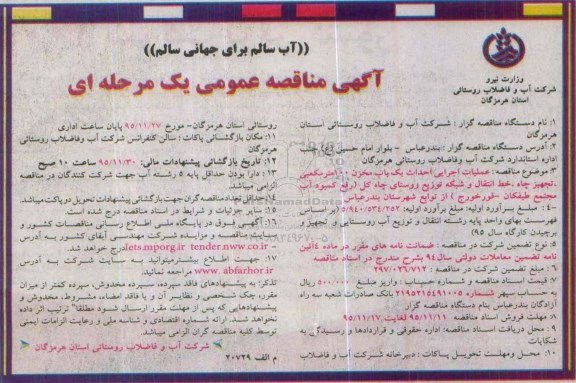 ((آب سالم برای جهانی سالم))
آگهی مناقصه عمومی یک مرحله ای
وزارت نیرو
شرکت آب و فاضلاب روستائی
استان هرمزگان
۱: نام دستگاه مناقصه گزار : شرکت آب و فاضلاب روستائی استان
هرمزگان
۲: آدرس دستگاه مناقصه گزار : بندرعباس - بلوار امام حسین
اداره استاندارد شرکت آب وفاضلاب روستائی هرمزگان
۳: موضوع مناقصه : عملیات اجرایی احداث یک باب مخزن ۱۰۰ مترمکعبی
،تجهیز چاه ،خط انتقال و شبکه توزیع روستای چاه کل (رفع کمبود آب
مجتمع طیفکان -لورخورج ) از توابع شهرستان بندرعباس
۴: مبلغ برآورد اولیه: مبلغ برآورد اولیه: ۵/۹۴۰/۵۳۴/۲۵۲ (بر اساس
فهرست بهای واحد پایه رشته انتقال و توزیع آب روستایی و تجهیز و
برچیدن کارگاه سال ۹۵)
۵: نوع تضمین شرکت در مناقصه : ضمانت نامه های مقرر در ماده ۴ آئین
نامه تضمین معاملات دولتی سال ۹۴ بشرح مندرج در اسناد مناقصه
۶ : مبلغ تضمین شرکت در مناقصه : ۲۹۷/۰۲۶/۷۱۲
۷: قیمت اسناد مناقصه و شماره حساب : واریز مبلغ ۵۰۰/۰۰۰ ریال
به حساب سپهر شماره ۲۱۹۵۲۱۵۴۹۱۰۰۵ بانک صادرات شعبه سه راه
آزادگان بندرعباس بنام دستگاه مناقصه گزار
۸: مهلت فروش اسناد مناقصه ۹۵/۱۱/۱۱ لغایت ۹۵/۱۱/۱۷
۹: محل دریافت اسناد مناقصه: اداره حقوقی و قراردادها و رسیدگی به
شکایات
۱۰: محل ومهلت تحویل پاکات : دبیرخانه شرکت آب و فاضلاب
روستائی استان هرمزگان- مورخ ۹۵/۱۱/۲۷ پایان ساعت اداری
۱۱: مکان بازگشائی پاکات : سالن کنفرانس شرکت آب وفاضلاب روستائی
هرمزگان
۱۲: تاریخ بازگشائی پیشنهادات مالی: ۹۵/۱۱/۳۰ ساعت ۱۰ صبح
۱۳: دارا بودن حداقل پایه ۵ رشته آب جهت شرکت کنندگان در مناقصه
الزامی میباشد.
۱۴:حداقل تعداد مناقصه گران جهت بازگشائی پیشنهادات تحویل دو پاکت میباشد.
۱۵: سایر جزئیات و شرایط در اسناد مناقصه درج شده است
۱۶: آگهی فوق در پایگاه ملی اطلاع رسانی مناقصات کشور و
سایت مناقصه و مزایده شرکت مهندسی آبفای کشور به آدرس
iets.mporg.ir tender.nww.co.ir درج خواهد شد.
۱۷: جهت اطلاع بیشترمیتوانید به سایت شرکت به آدرس
www. abfarhor.ir مراجعه نمائید.
تذکر: به پیشنهادهای فاقد سپرده، سپرده مخدوش، سپرده کمتر از میزان
مقرر، چک شخصی و نظایر آن و یا فاقد امضاء، مشروط، مخدوش و
پیشنهادهایی که پس از مهلت مقرر ارسال شود مطلقا" ترتیب اثر داده
نخواهد شد. ارائه شماره اقتصادی و شناسه ملی و رعایت الزامات ایمنی
توسط کلیه مناقصه گران الزامی میباشد.
شرکت آب و فاضلاب روستائی استان هرمزگان
م الف ۲۰۷۲۹